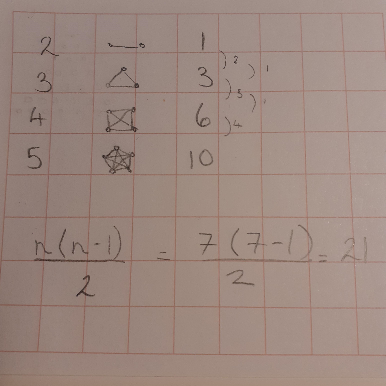 2 1
)2
3 3 )1
)3
4 6 )1
)4
5 10
n(n-1)/2 = 7(7-1)/2 = 21